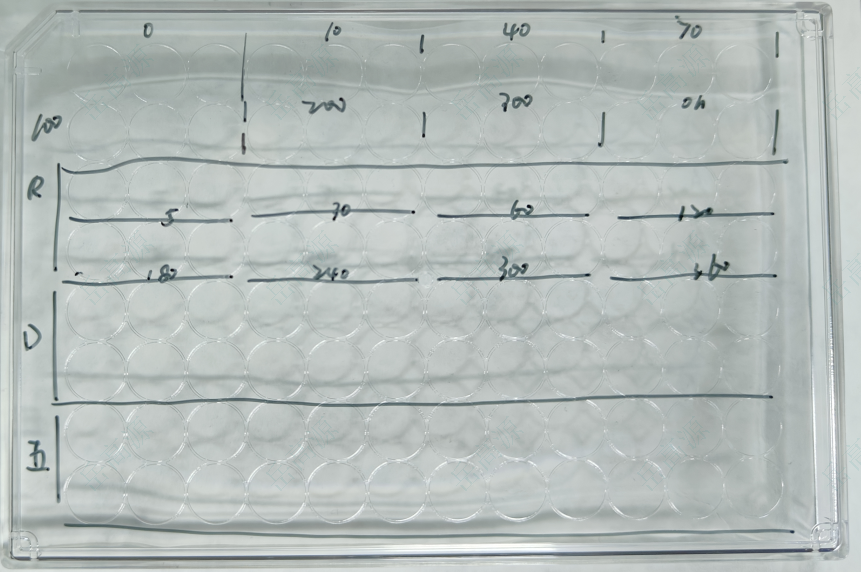 0 10 40 70
100 200 300 04
R
5 30 60 120
180 240 300 360
D
五